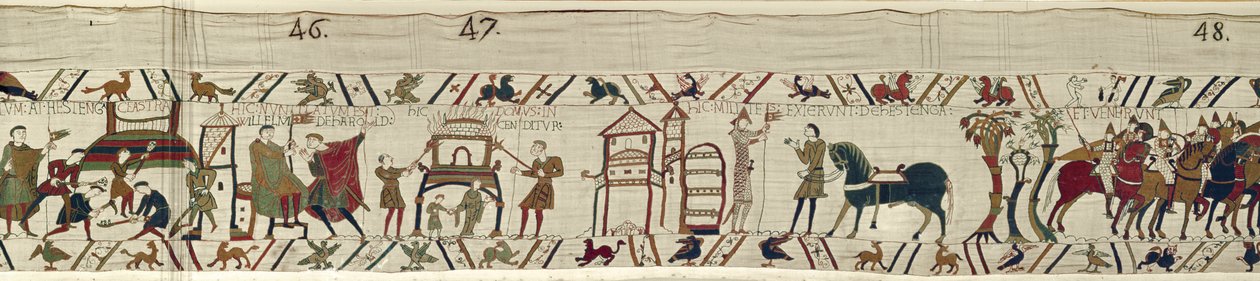 46. 47. 48.
VM: AT HESTENG CEASTRA
HIC: NVNTIATVM EST:
WILLELM DEHAROLD:
HIC DOMVS: IN
CENDITVR:
HIC: MILITES: EXIERVNT: DEHESTENGA:
ET VENERVNT